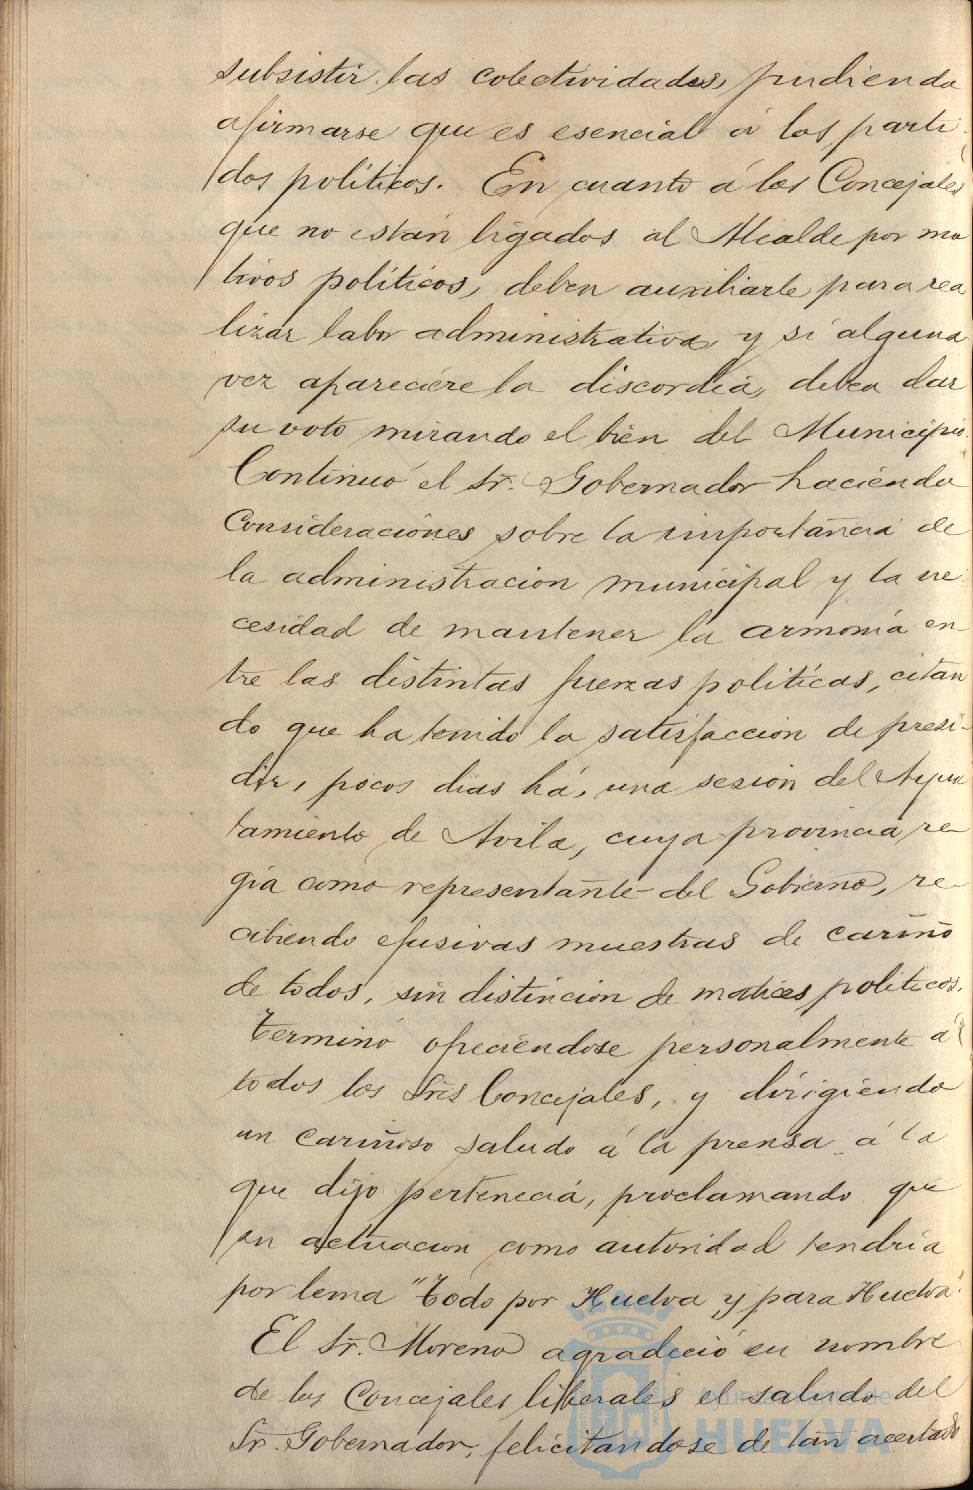 subsistir las colectividades, pudiendo
afirmarse que es esencial á los parti-
dos políticos. En cuanto á los Concejales
que no están ligados al Alcalde por mo
tivos políticos, deben auxiliarle para rea
lizar labor administrativa, y si alguna
vez apareciere la discordia, deben dar
su voto mirando el bien del Municipio.
Continuó el Sr. Gobernador haciendo
consideraciones sobre la importancia de
la administracion municipal y la ne
cesidad de mantener la armonía en-
tre las distintas fuerzas políticas, citan
do que ha tenido la satisfaccion de presi-
dir, pocos dias há, una sesion del Ayun
tamiento de Avila, cuya provincia re
gía como representante del Gobierno, re-
cibiendo efusivas muestras de cariño
de todos, sin distincion de matices políticos.
Terminó ofreciéndose personalmente á
todos los Sres Concejales, y dirigiendo
un cariñoso saludo á la prensa á la
que dijo pertenecia, proclamando que
su actuacion como autoridad tendría
por lema "Todo por Huelva y para Huelva"
El Sr. Moreno agradeció en nombre
de los Concejales liberales el saludo del
Sr. Gobernador, felicitandose de tan acertado
Ayuntamiento de
HUELVA